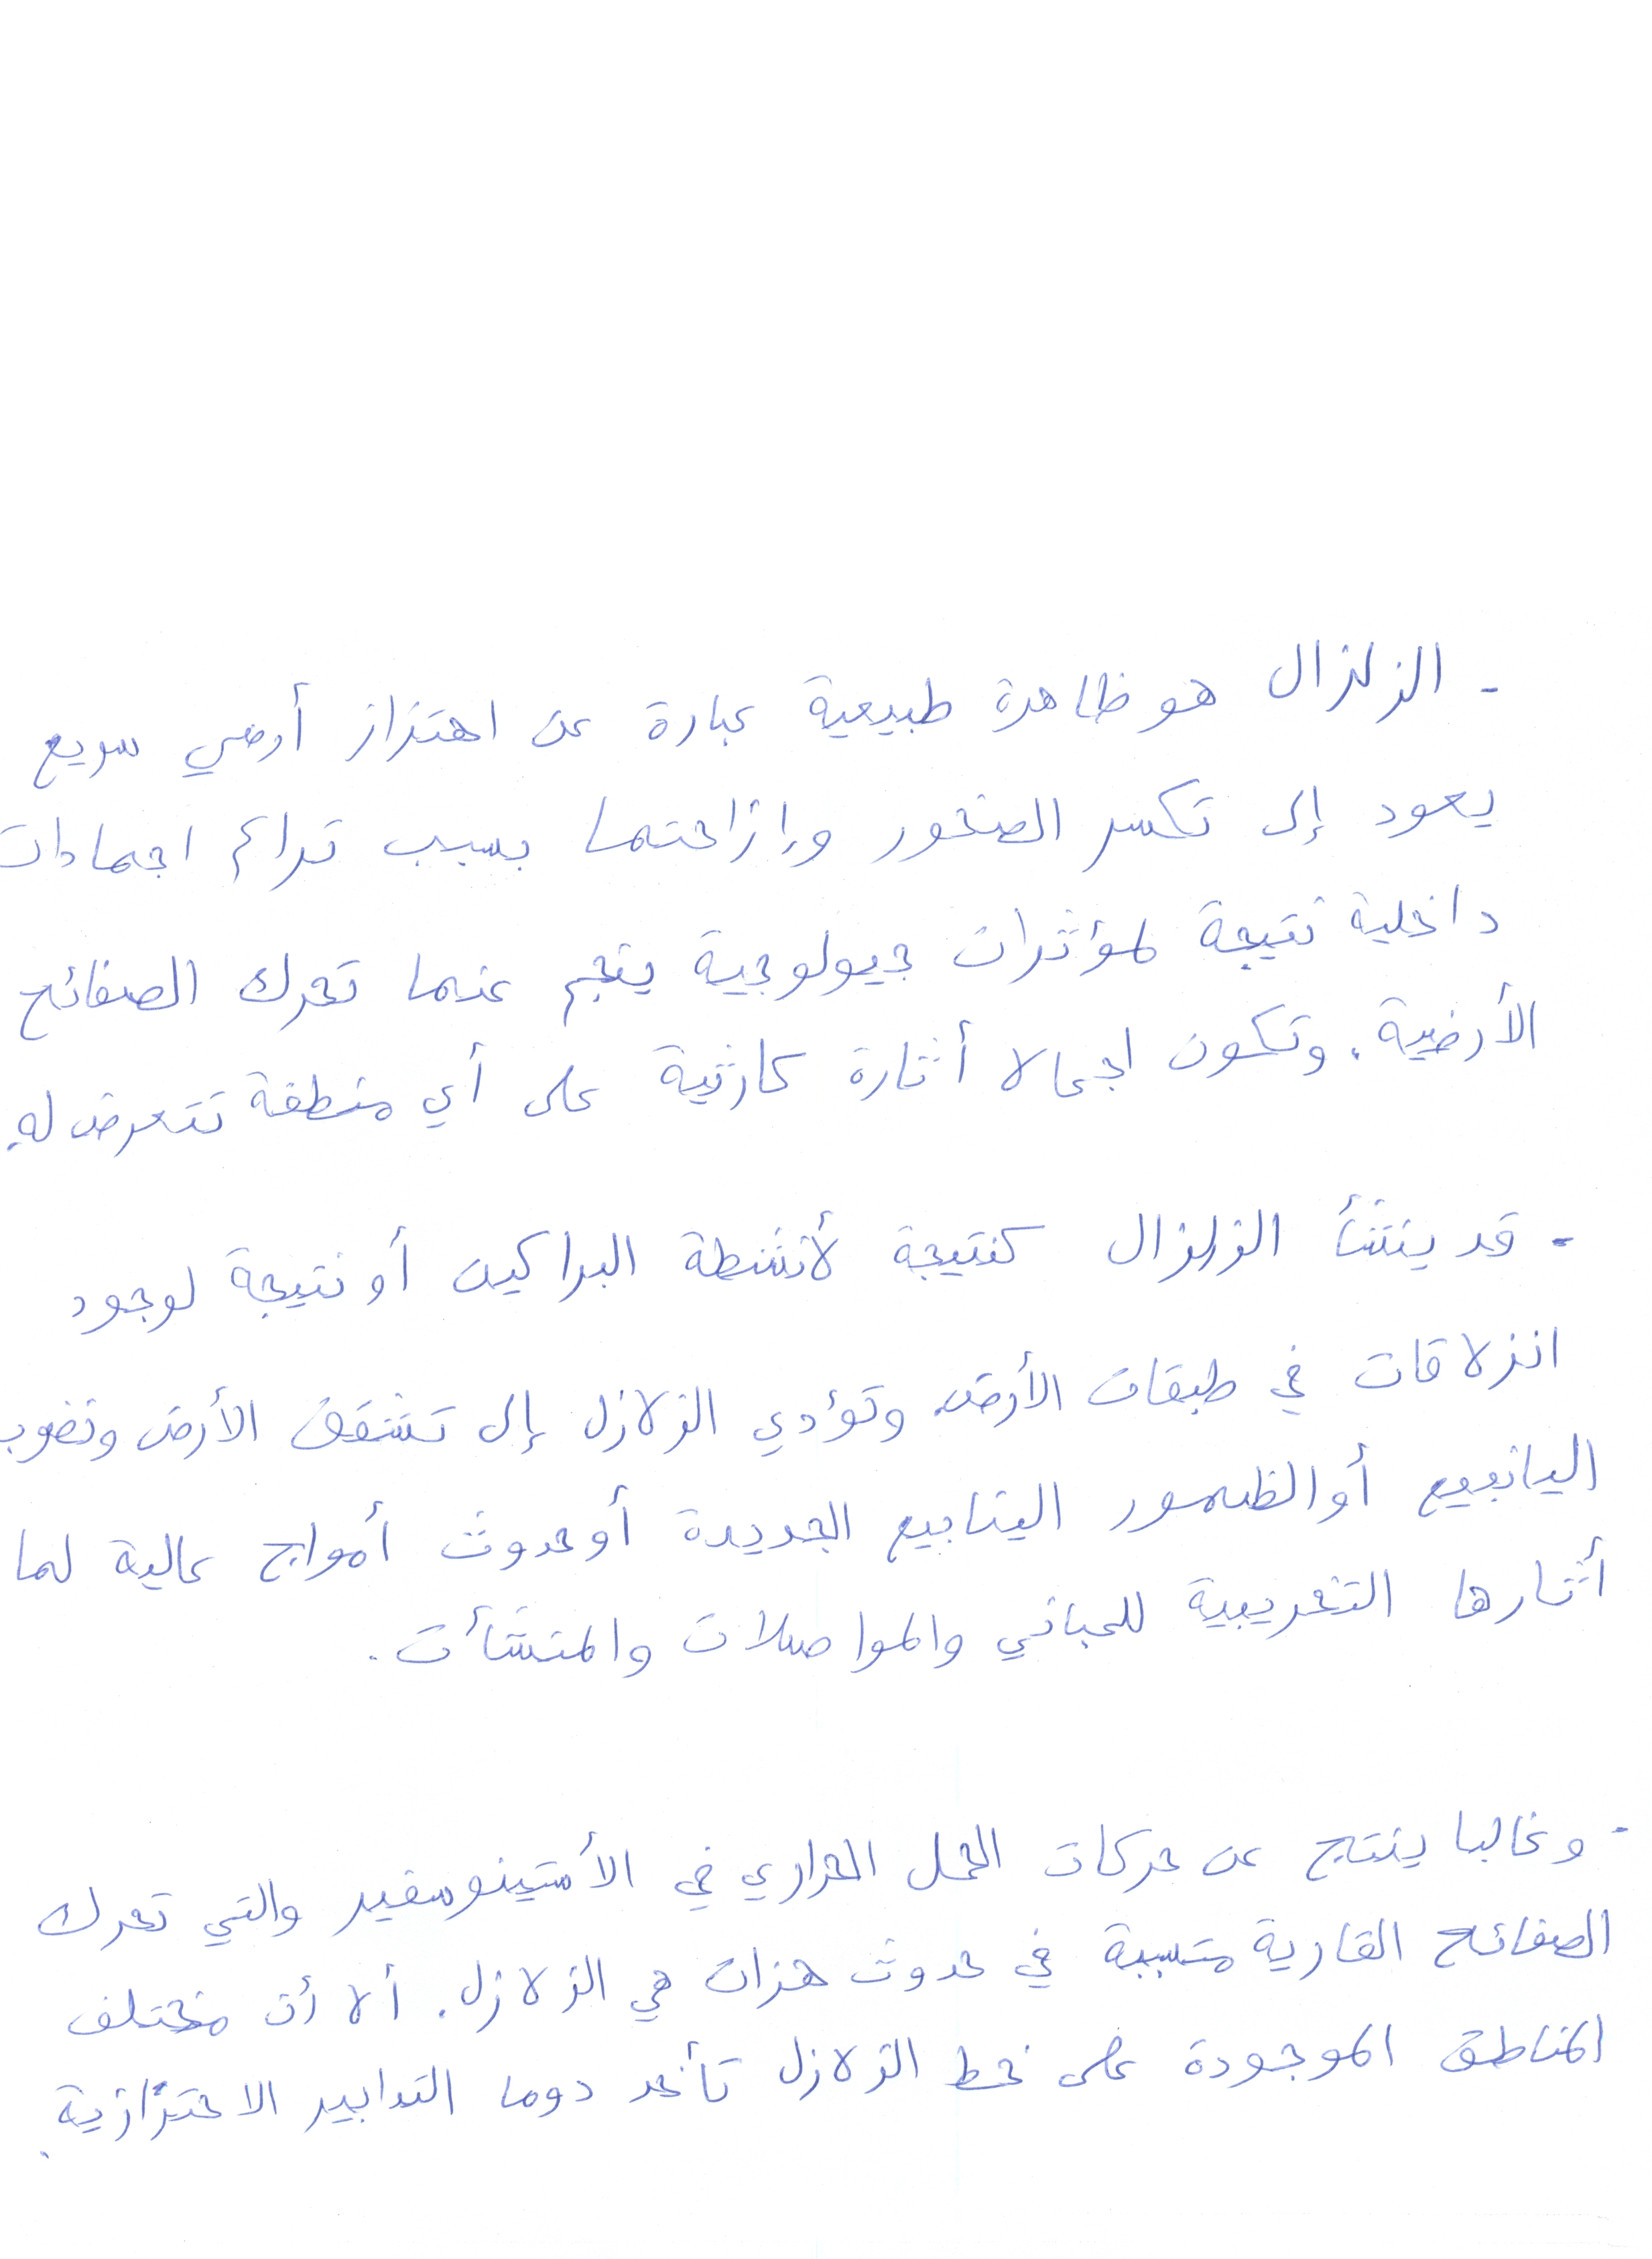 - الزلزال هو ظاهرة طبيعية عبارة عن اهتزاز أرضي سريع
يعود إلى تكسر الصخور وإزاحتها بسبب تراكم اجهادات
داخلية نتيجة لمؤثرات جيولوجية ينجم عنها تحرك الصفائح
الأرضية. وتكون اجمالا أثارة كارثية على أي منطقة تتعرض له.
- قد ينشأ الزلزال كنتيجة لأنشطة البراكين أو نتيجة لوجود
انزلاقات في طبقات الأرض. وتؤدي الزلازل إلى تشقق الأرض ونضوب
اليانبيع أو الظهور الينابيع الجديدة أو حدوث أمواج عالية لها
أثارها التخريبية للمباني والمواصلات والمنشأت.
- وغالبا ينتج عن حركات الحمل الحراري في الأستينوسفير والتي تحرك
الصفائح القارية متسببة في حدوث هزات هي الزلازل. ألا أن مختلف
المناطق الموجودة على خط الزلازل تأخد دوما التدابير الاحترازية.